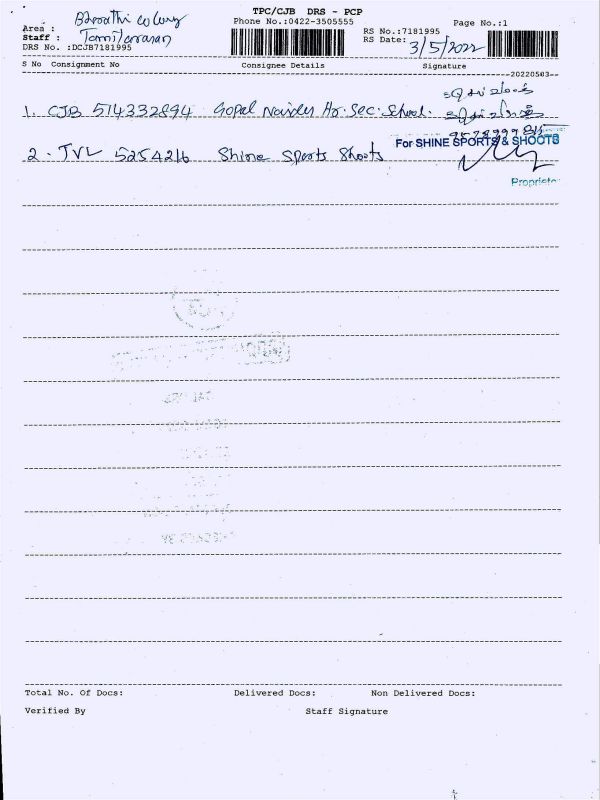 TPC/CJB DRS - PCP
Phone No.:0422-3505555
Page No.:1
Area : Bharathi colony
Staff : Tamilarasan
DRS No. :DCJB7181995
RS No.:7181995
RS Date: 3/5/2022
S No Consignment No Consignee Details Signature
20220503
1. CJB 514332894 Gopal Naidu Hr. Sec. School.
2. TVL 5254216 Shine Sports Shoots
For SHINE SPORTS & SHOOTS
Proprietor
Total No. Of Docs: Delivered Docs: Non Delivered Docs:
Verified By Staff Signature